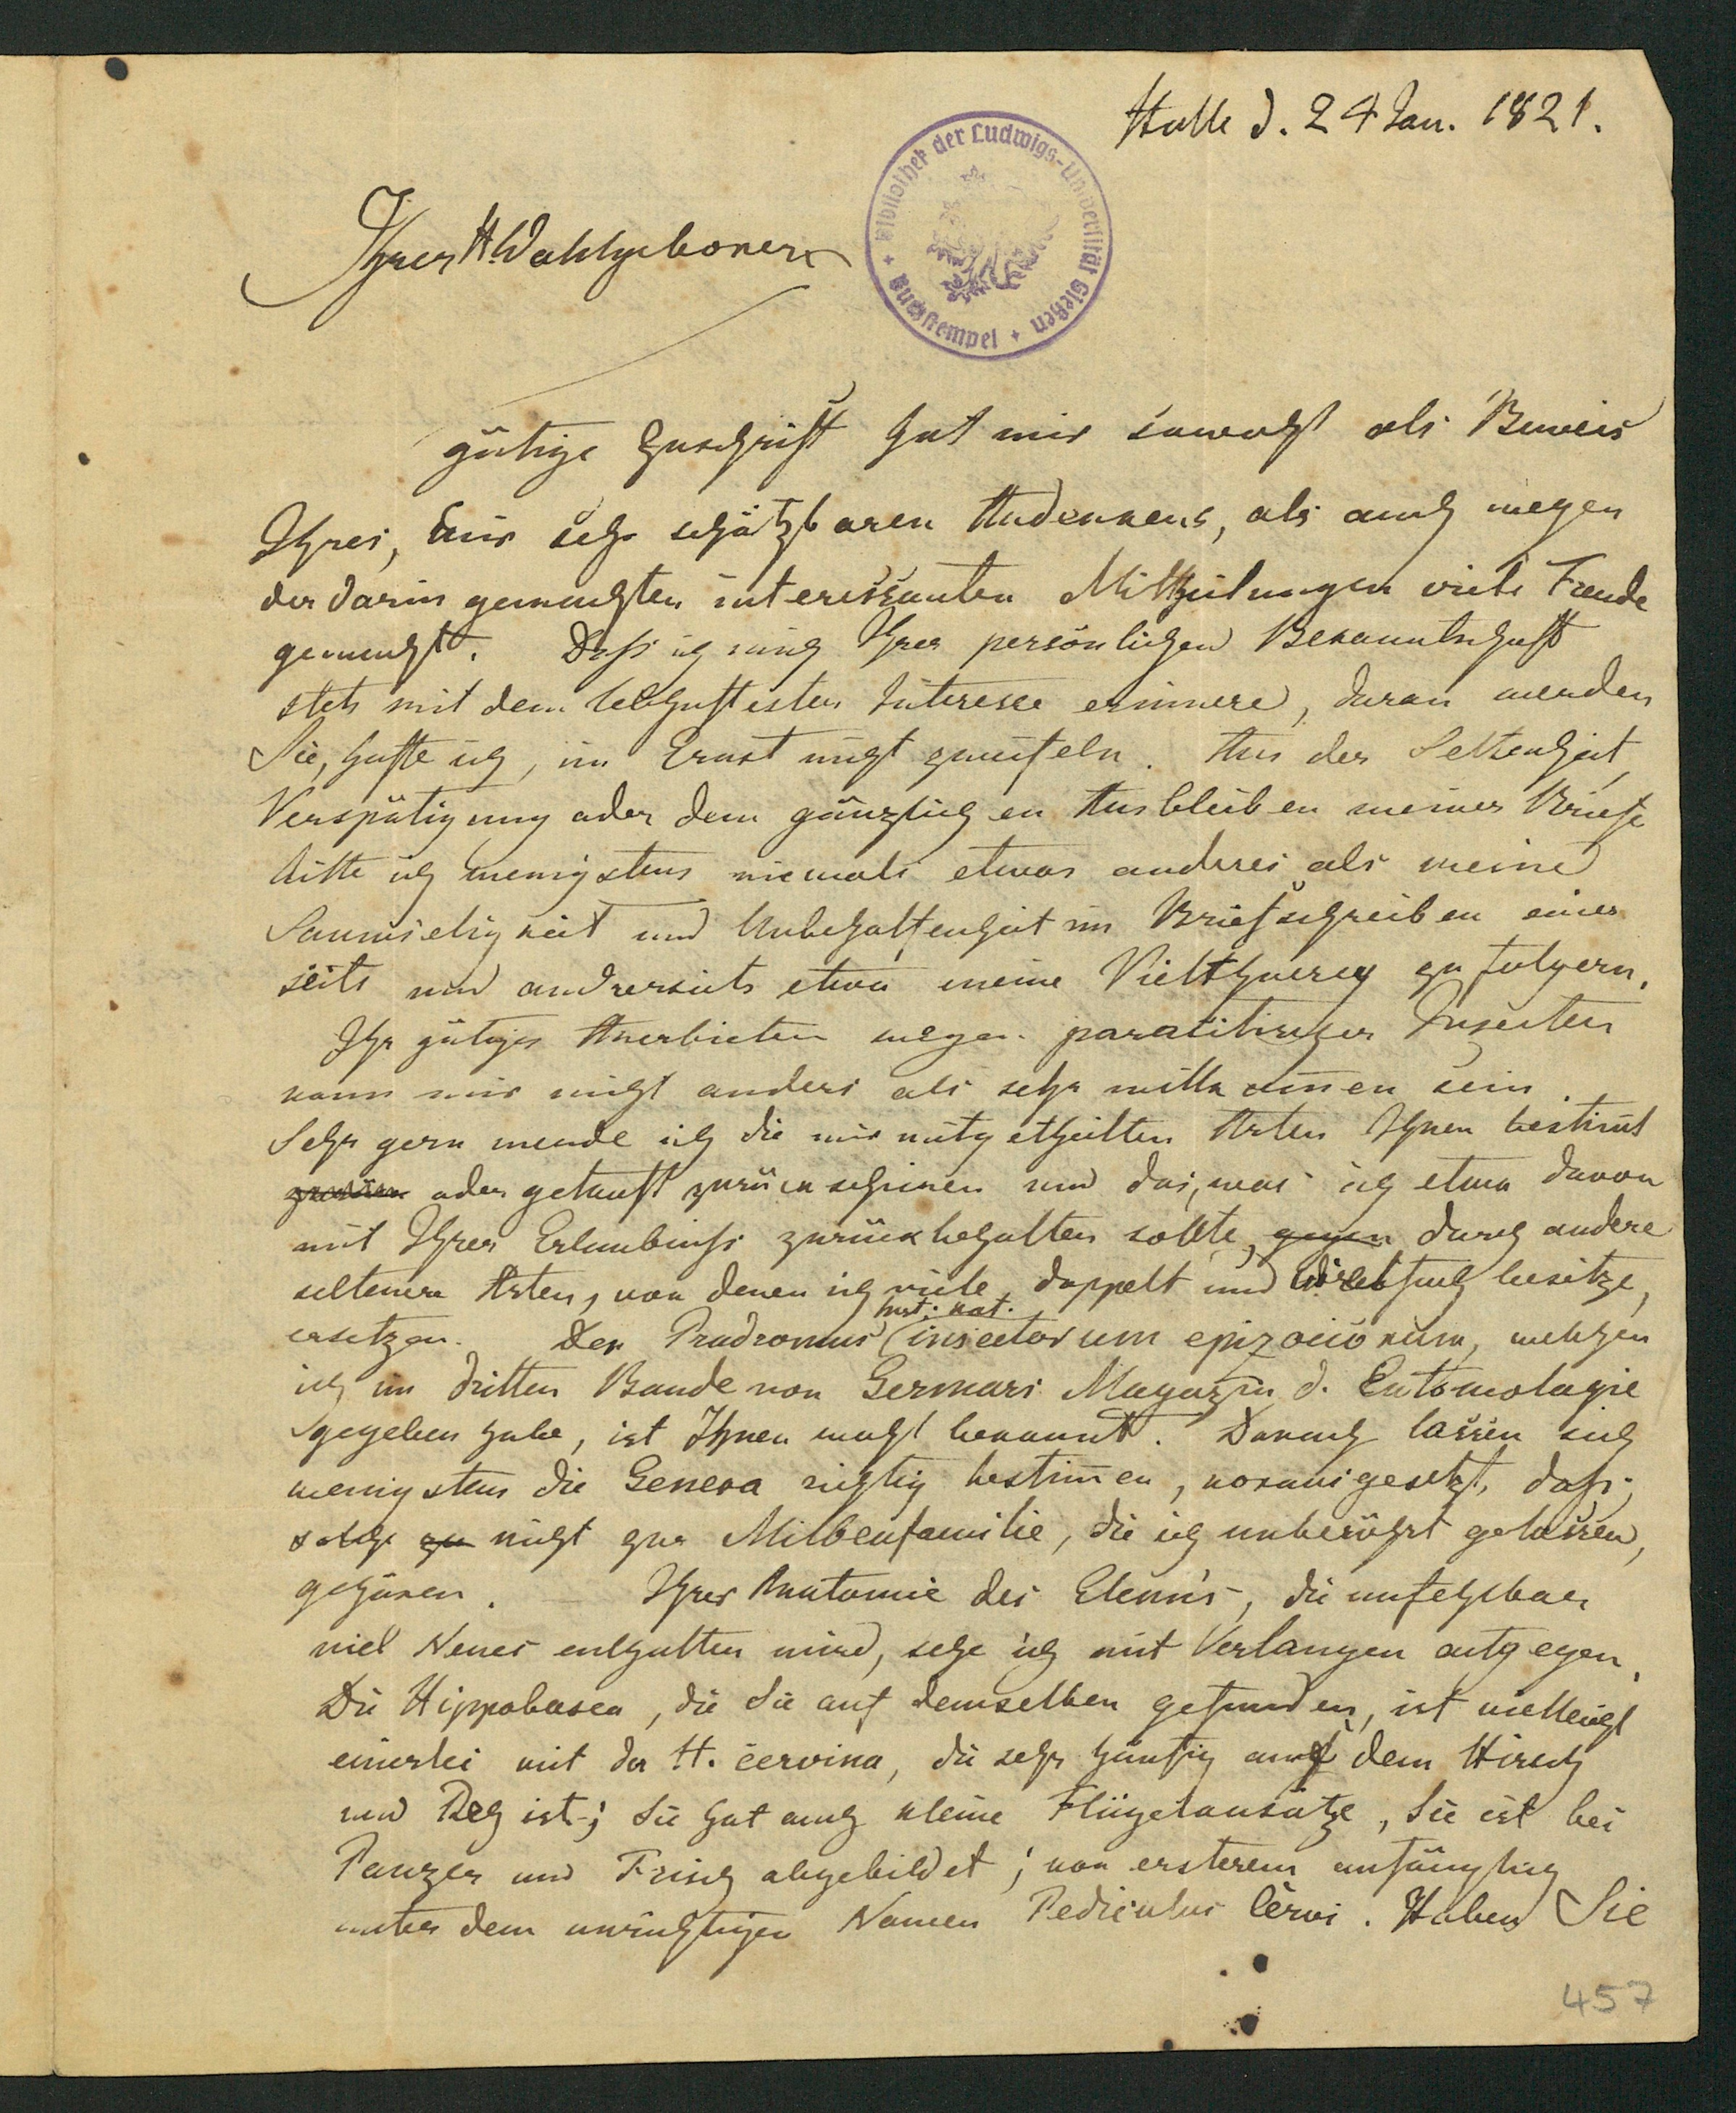 Halle d. 24 Jan. 1821.
Bibliothek der Ludwigs-Universität Gießen + Buchstempel +
Ihrer H. Wohlgeboren
gütige Zuschrift hat mir sowohl als Beweis
Ihres, mir sehr schätzbaren Andenkens, als auch wegen
der darin gemachten interessanten Mittheilungen viele Freude
gemacht. Daß ich mich Ihrer persönlichen Bekanntschaft
stets mit dem lebhaftesten Interesse erinnere, daran werden
Sie, hoffe ich, im Ernst nicht zweifeln. Aus der Seltenheit,
Verspätigung oder dem gänzlichen Ausbleiben meiner Briefe
bitte ich wenigstens niemals etwas anderes als meine
Saumseligkeit und Unbeholfenheit im Briefschreiben einer
seits und andrerseits etwa meine Vielthuerey zu folgern.
Ihr gütiges Anerbieten wegen parasitischer Insecten
kann mir nicht anders als sehr willkom̅en sein.
Sehr gern werde ich die mir mitgetheilten Arten Ihnen bestim̅t
oder getauft zurückschicken und das, was ich etwa davon
mit Ihrer Erlaubniß zurückbehalten sollte, gegen durch andere
seltenere Arten, von denen ich viele doppelt und besitze,
ersetzen. Den Prodromus hist. nat. insectorum epizoicorum, welchen
ich im dritten Bande von Germars Magazin d. Entomologie
gegeben habe, ist Ihnen wohl bekannt. Darnach lassen sich
wenigstens die Genera richtig bestim̅en, vorausgesetzt, daß
solche zu nicht zur Milbenfamilie, die ich unberührt gelassen,
gehören. – Ihrer Anatomie des Elenns, die unfehlbar
viel Neues enthalten wird, sehe ich mit Verlangen entgegen.
Die Hippobosca, die Sie auf demselben gefunden, ist vielleicht
einerlei mit der H. cervina, die sehr häufig auf dem Hirsch
und Reh ist; Sie hat auch kleine Flügelansätze, Sie ist bei
Panzer und Frisch abgebildet; von ersterem anfänglich
unter dem unrichtigen Namen Pediculus Cervi. Haben Sie
457